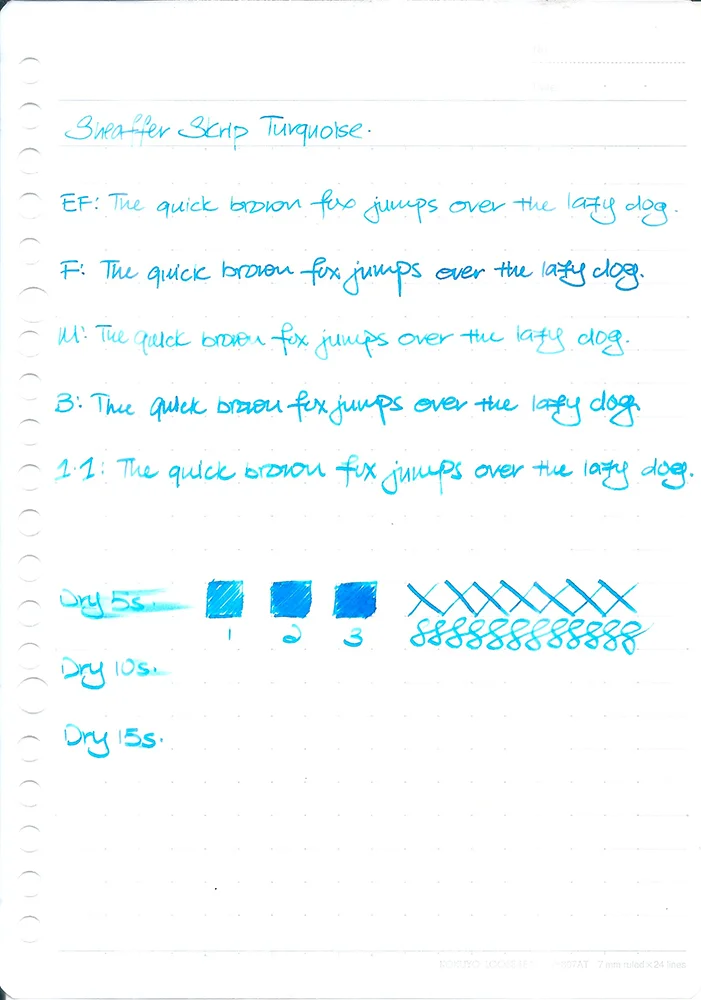 Sheaffer Skrip Turquoise.
EF: The quick brown fox jumps over the lazy dog.
F: The quick brown fox jumps over the lazy dog.
M: The quick brown fox jumps over the lazy dog.
B: The quick brown fox jumps over the lazy dog.
1.1: The quick brown fox jumps over the lazy dog.
Dry 5s.
1 2 3
Dry 10s.
Dry 15s.
7 mm ruled × 24 lines